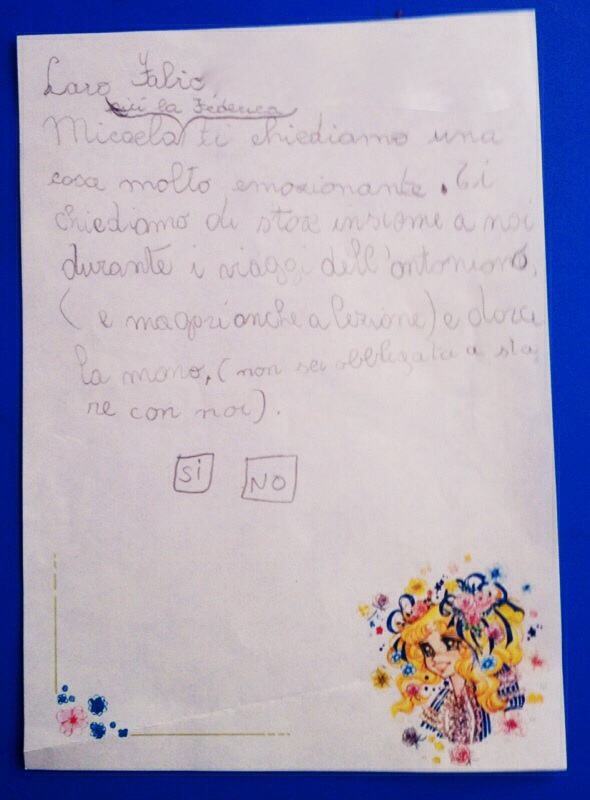 Caro Fabio,
più la Federica
Micaela ti chiediamo una
cosa molto emozionante. Ti
chiediamo di stare insieme a noi
durante i viaggi dell'antoniano,
( e magari anche a lezione) e darci
la mano, (non sei obbligata a sta
re con noi).
SI NO